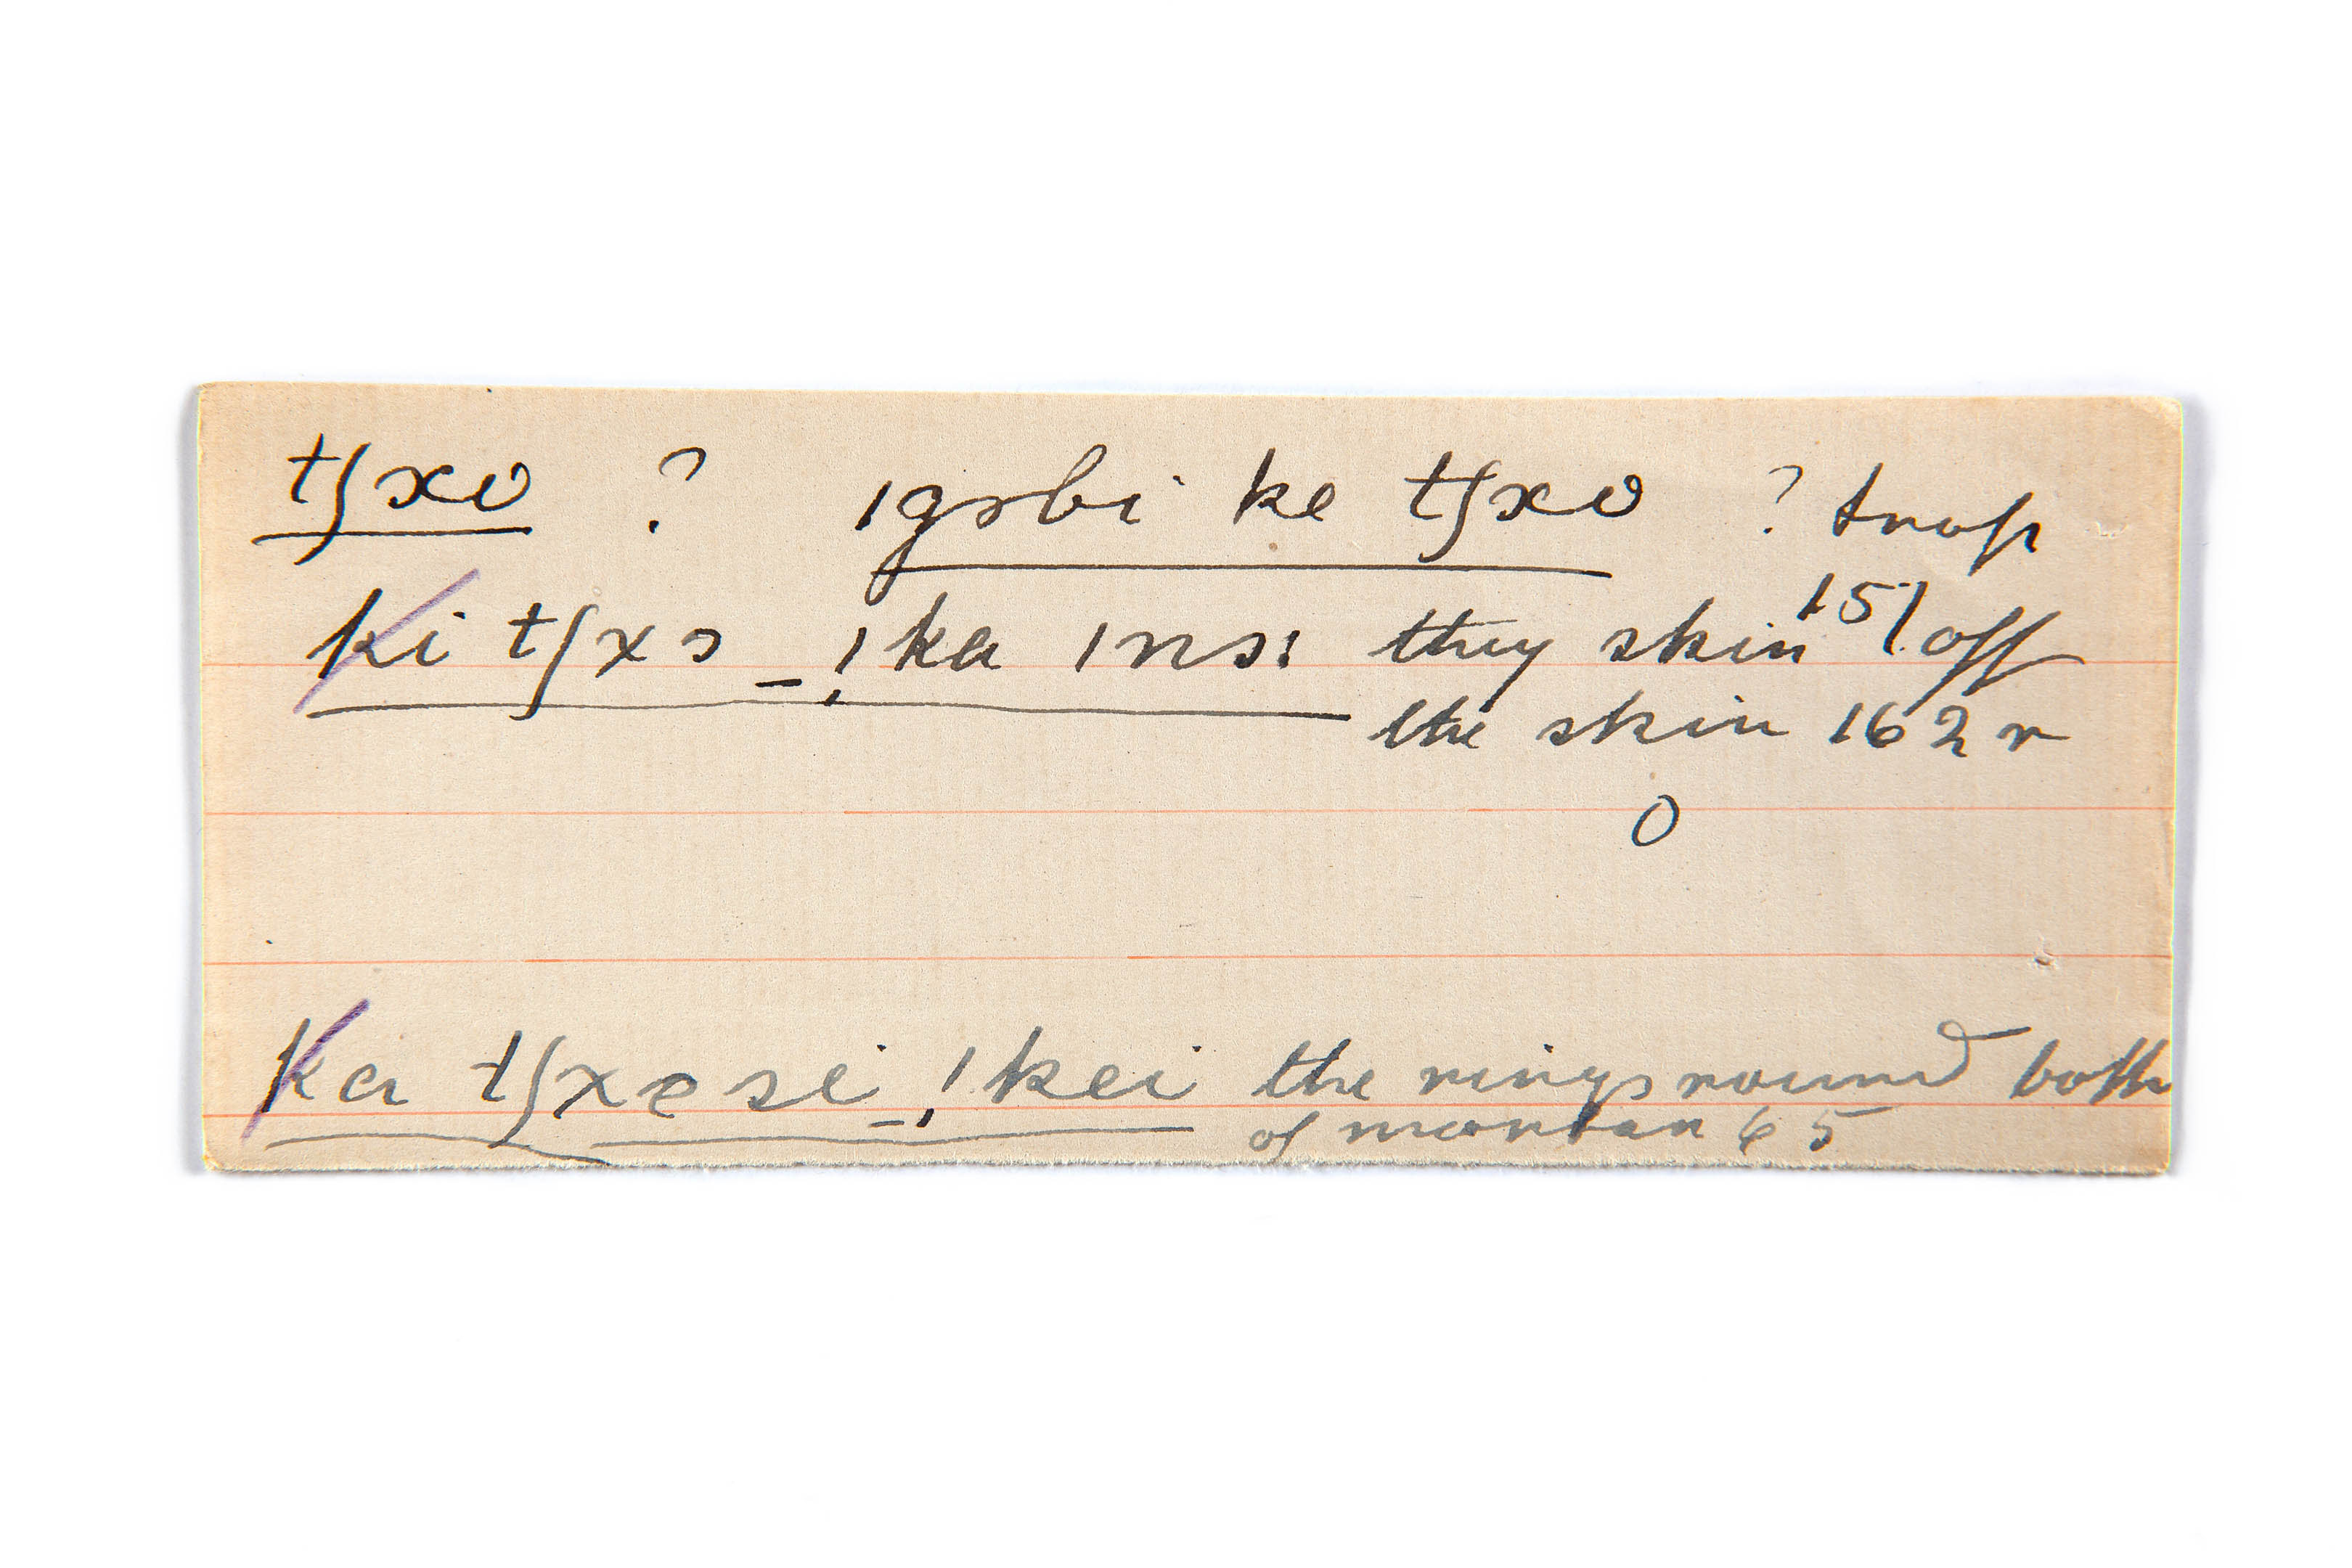 tʃxo ? ıgɔbi ke tʃxo ? trap
151
Ki tʃxɔ _!ka ınsı they skin off
the skin 162 r
O
Ka tʃxesi _!kei the rings round both
of mortar 65